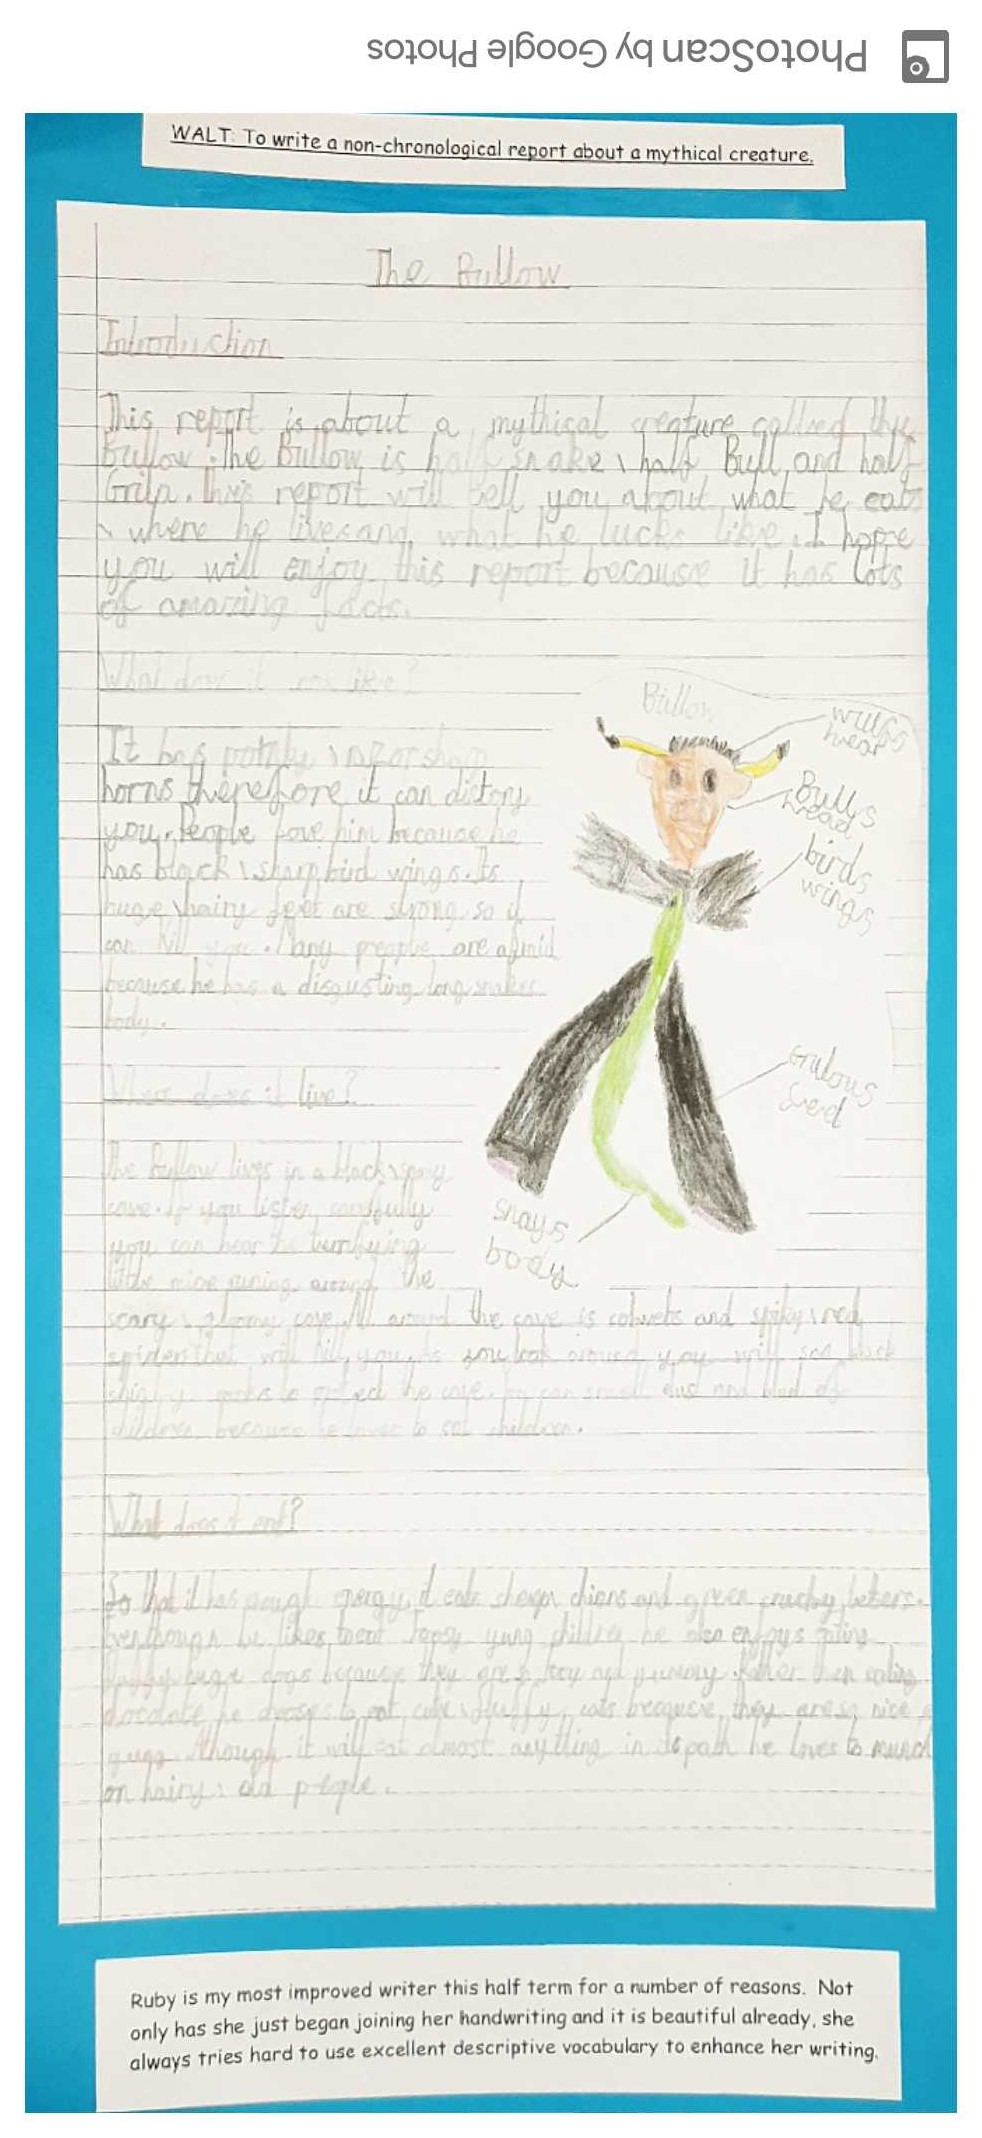 PhotoScan by Google Photos
WALT: To write a non-chronological report about a mythical creature.
The Bullow
Introduction
This report is about a mythical creature called the
Bullow. The Bullow is half snake, half Bull, and half
Grila. This report will tell you about what he eats
, where he lives and what he lucks like. I hoppe
you will enjoy this report because it has lots
of amazing facts.
What does it look like?
It has pointy,
horns therefore it can distory
you. People love him because he
has black, sharp bird wings. Its
huge, hairy feet are strong so it
can kill you. Many people are afraid
because he has a disgusting long snakes
body.
Bullow
wulfs
hear
Bulls
head
birds
wings
Grulous
feed
snays
body
Where does it live?
The Bullow lives in a black, spooky
cave. If you listen carefully
you can hear the terrifying
little mice runing around the
scary, gloomy cave. All around the cave is cobwebs and spikey, red
spiders that will kill you. As you look around you will see black
shiny rocks to the cave. You can smell dust and blud of
children because he loves to eat children.
What does it eat?
So that it has enough energy it eats and green crunchy
Even though he likes to eat young children he also enjoys eating
huge dogs because they are and yummy. Rather than eating
chocolate he chooses to eat cute, fluffy, cats because they are so nice
though it will eat almost anything in its path he loves to munch
on hairy, old people.
Ruby is my most improved writer this half term for a number of reasons. Not
only has she just began joining her handwriting and it is beautiful already, she
always tries hard to use excellent descriptive vocabulary to enhance her writing.